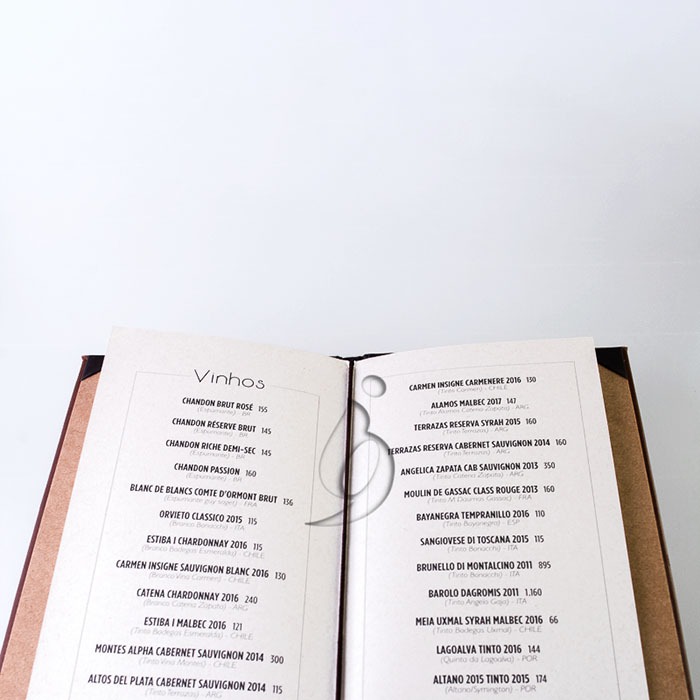 Vinhos
CHANDON BRUT ROSÉ 155
(Espumante) - BR
CHANDON RÉSERVE BRUT 145
(Espumante) - BR
CHANDON RICHE DEMI-SEC 145
(Espumante) - BR
CHANDON PASSION 160
(Espumante) - BR
BLANC DE BLANCS COMTE D'ORMONT BRUT 136
(Espumante guy saget) - FRA
ORVIETO CLASSICO 2015 115
(Branco Bonacchi) - ITA
ESTIBA I CHARDONNAY 2016 115
(Branco Bodegas Esmeralda) - CHILE
CARMEN INSIGNE SAUVIGNON BLANC 2016 130
(Branco Vina Carmen) - CHILE
CATENA CHARDONNAY 2016 240
(Branco Catena Zapata) - ARG
ESTIBA I MALBEC 2016 121
(Tinto Bodegas Esmeralda) - CHILE
MONTES ALPHA CABERNET SAUVIGNON 2014 300
(Tinto Vina Montes) - CHILE
ALTOS DEL PLATA CABERNET SAUVIGNON 2014 115
(Tinto Terrazas) - ARG
CARMEN INSIGNE CARMENERE 2016 130
(Tinto Carmen) - CHILE
ALAMOS MALBEC 2017 147
(Tinto Alamos Catena Zapata) - ARG
TERRAZAS RESERVA SYRAH 2015 160
(Tinto Terrazas) - ARG
TERRAZAS RESERVA CABERNET SAUVIGNON 2014 160
(Tinto Terrazas) - ARG
ANGELICA ZAPATA CAB SAUVIGNON 2013 350
(Tinto Catena Zapata) - ARG
MOULIN DE GASSAC CLASS ROUGE 2013 160
(Tinto M Daumas Gassac) - FRA
BAYANEGRA TEMPRANILLO 2016 110
(Tinto Bayanegra) - ESP
SANGIOVESE DI TOSCANA 2015 115
(Tinto Bonacchi) - ITA
BRUNELLO DI MONTALCINO 2011 895
(Tinto Bonacchi) - ITA
BAROLO DAGROMIS 2011 1.160
(Tinto Angelo Gaja) - ITA
MEIA UXMAL SYRAH MALBEC 2016 66
(Tinto Bodegas Uxmal) - CHILE
LAGOALVA TINTO 2016 144
(Quinta da Lagoalva) - POR
ALTANO 2015 TINTO 2015 174
(Altano/Symington) - POR